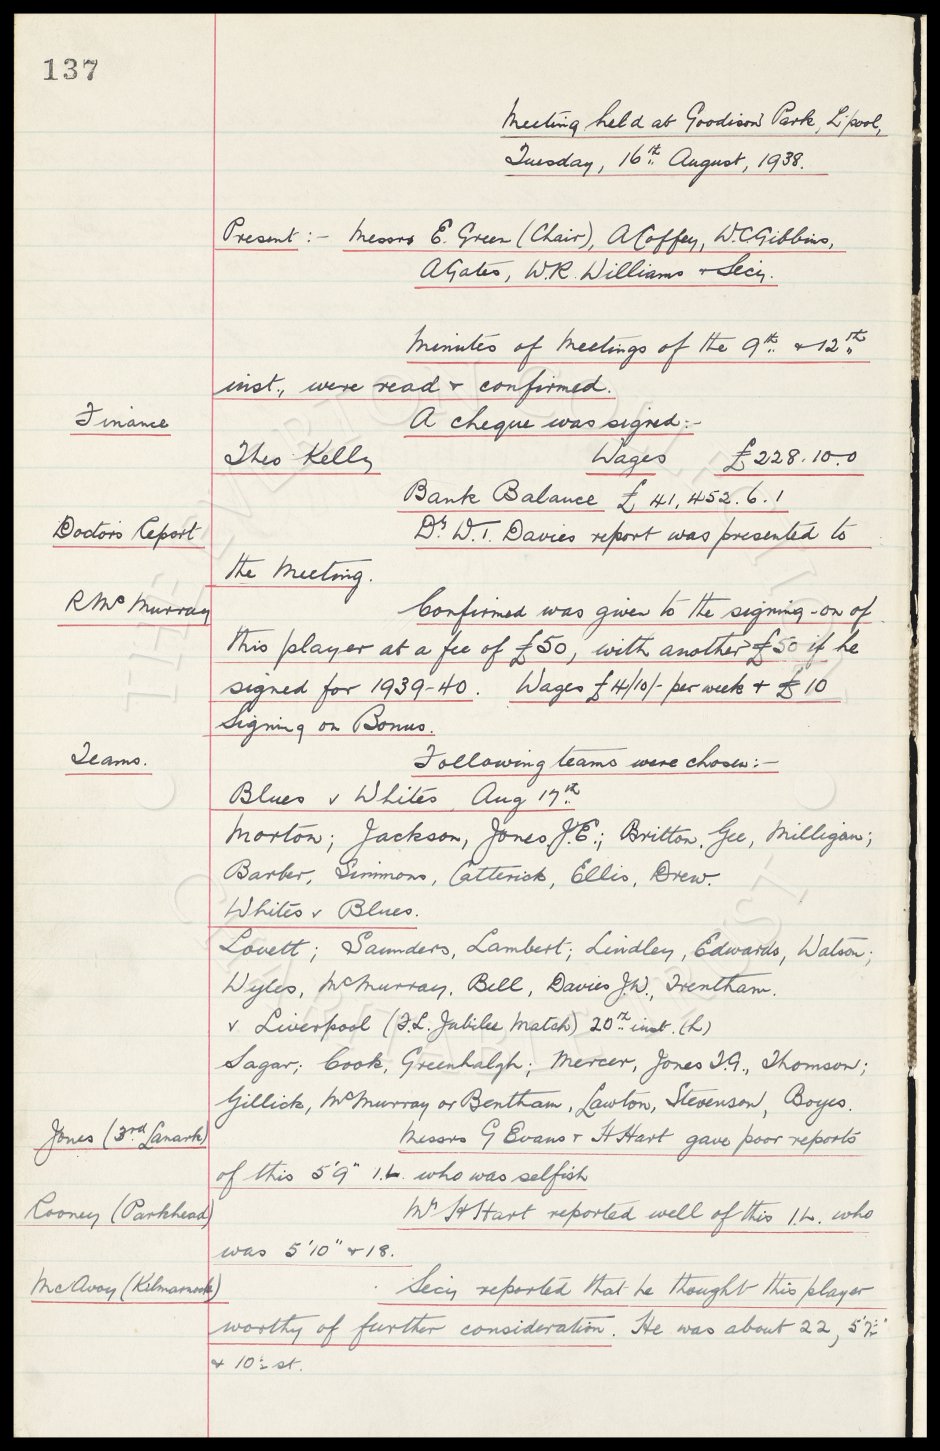 137
Meeting held at Goodison Park, L'pool,
Tuesday, 16th August, 1938.
Present :- Messrs E. Green (Chair), A Coffey, W.C Gibbins,
A Gates, W.R. Williams + Secy.
Minutes of Meetings of the 9th + 12th
inst., were read + confirmed.
Finance A cheque was signed:-
Theo Kelly Wages £228.10.0
Bank Balance £41,452.6.1
Doctors Report Dr. W.T. Davies report was presented to
the Meeting.
R Mc Murray Confirmed was given to the signing-on of
this player at a fee of £50, with another £50 if he
signed for 1939-40. Wages £4/10/- per week + £10
Signing on Bonus.
Teams. Following teams were chosen:-
Blues v Whites, Aug 17th
Morton; Jackson, Jones J.E.; Britton, Gee, Milligan;
Barber, Simmons, Catterick, Ellis, Drew.
Whites v Blues.
Lovett; Saunders, Lambert; Lindley, Edwards, Watson;
Wyles, McMurray, Bell, Davies J.W., Trentham.
v Liverpool (F.L. Jubilee Match) 20th inst. (h)
Sagar; Cook, Greenhalgh; Mercer, Jones T.G., Thomson;
Gillick, McMurray or Bentham, Lawton, Stevenson, Boyes.
Jones (3rd Lanark) Messrs G Evans + H Hart gave poor reports
of this 5'9" I.L. who was selfish
Rooney (Parkhead) Mr H Hart reported well of this I.L. who
was 5'10" + 18.
McAvoy (Kilmarnock) Secy reported that he thought this player
worthy of further consideration. He was about 22, 5'7½"
+ 10½ st.
THE EVERTON COLLECTION
CHARITABLE TRUST